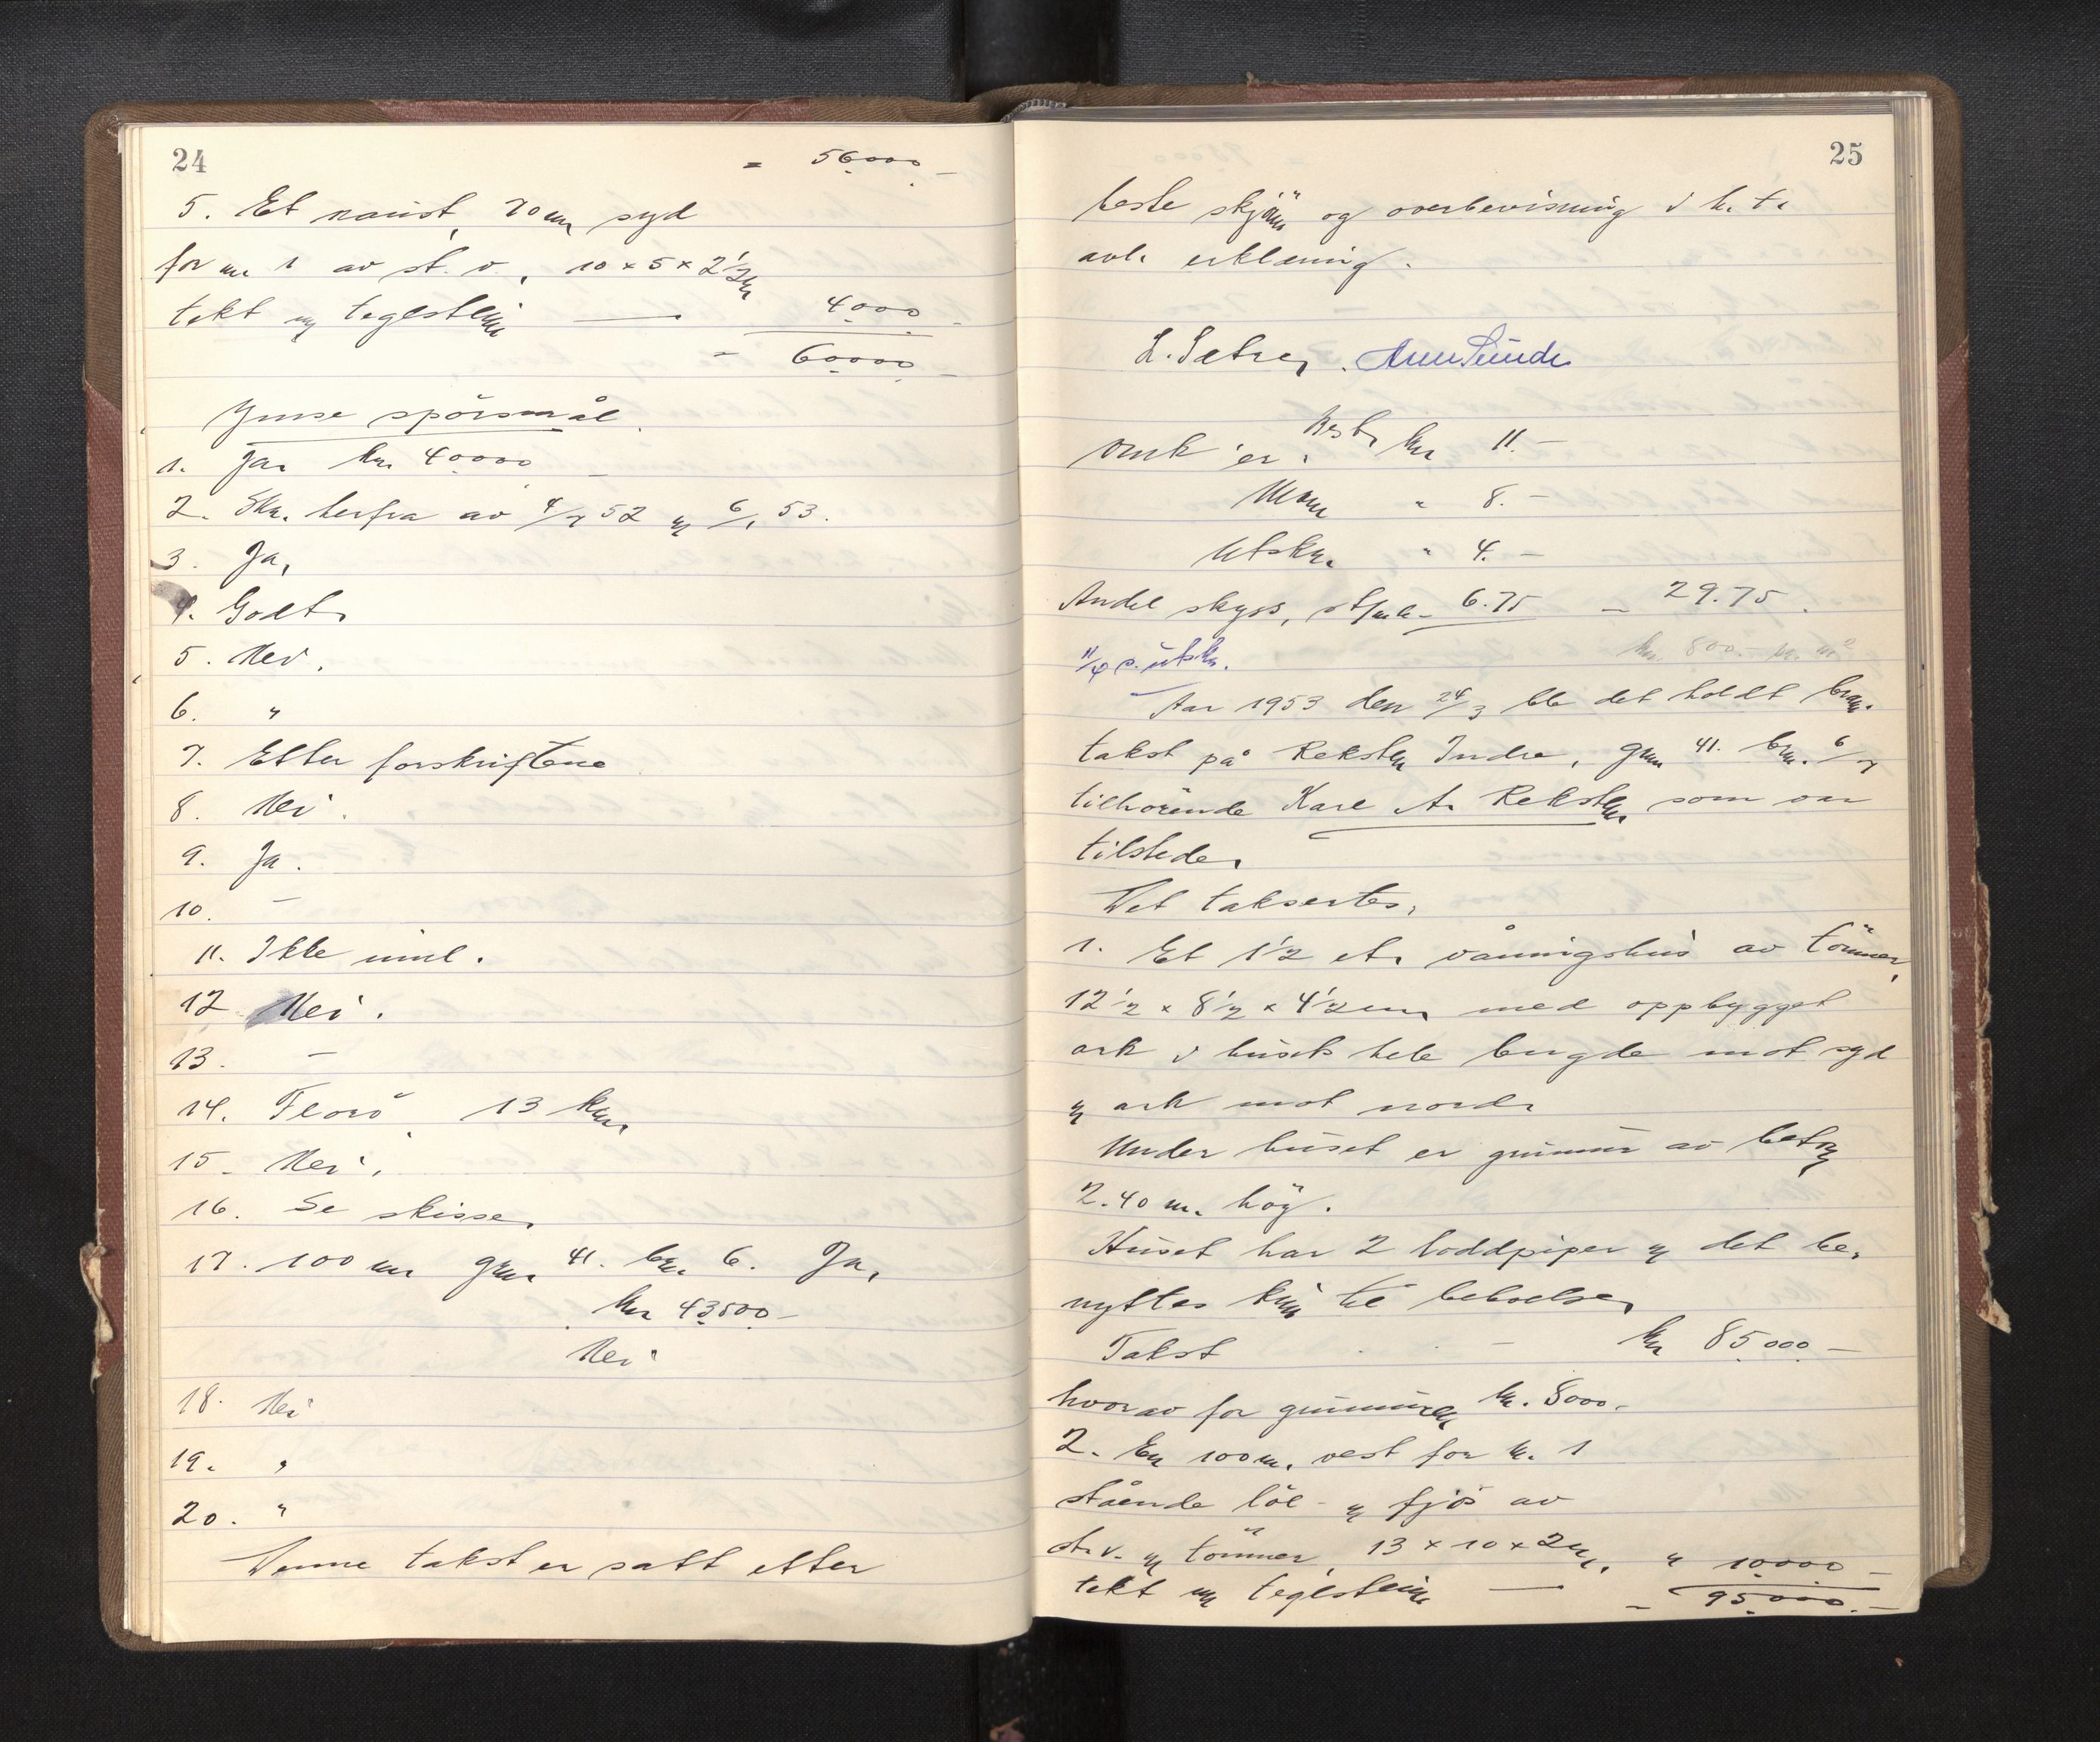 24
= 56000 -
5. Et naust, 70 m syd
for nr 1 av st. v., 10 x 5 x 2 1/2 m
tekt m teglstein — 4000 -
- 60000 -
Ymse spörsmål.
1. Ja. kr. 40000 -
2. Skr. herfra av 4/7 52 og 6/1 53.
3. Ja.
4. Godt.
5. Nei.
6. "
7. Etter forskriftene
8. Nei.
9. Ja.
10. -
11. Ikke innl.
12 Nei.
13. -
14. Florö, 13 km.
15. Nei.
16. Se skisse.
17. 100 m gnr. 41. bnr. 6. Ja.
kr 43500 -
Nei
18. Nei
19. "
20. "
Denne takst er satt etter
25
beste skjönn og overbevisning i h. t.
avl. erklæring.
L. Sætre. Arne Sunde
Omk er: Best. kr 11.-
Mann " 8.-
Utskr. " 4.-
Andel skyss, stpl. 6.75 - 29.75.
11/4 s. utskr. kr. 800.- pr. m2
Aar 1953 den 24/3 ble det holdt bran.
takst på Reksten Indre, gnr 41. bnr. 6/7
tilhörende Kare A. Reksten, som var
tilstede.
Det taksertes,
1. Et 1 1/2 et. våningshus av tömmer,
12 1/2 x 8 1/2 x 4 1/2 m, med oppbygget
ark i husets hele lengde mot syd
og ark mot nord.
Under huset er grunnmur av betong
2.40 m. höy.
Huset har 2 loddpiper og det be-
nyttes kun til beboelse.
Takst - kr 85000 -
hvorav for grunnmuren kr. 8000.-
2. En 100 m. vest for nr. 1
stående löe- og fjös av
st. v. og tömmer, 13 x 10 x 2 m, " 10000 -
tekt m teglstein — - 95000.-